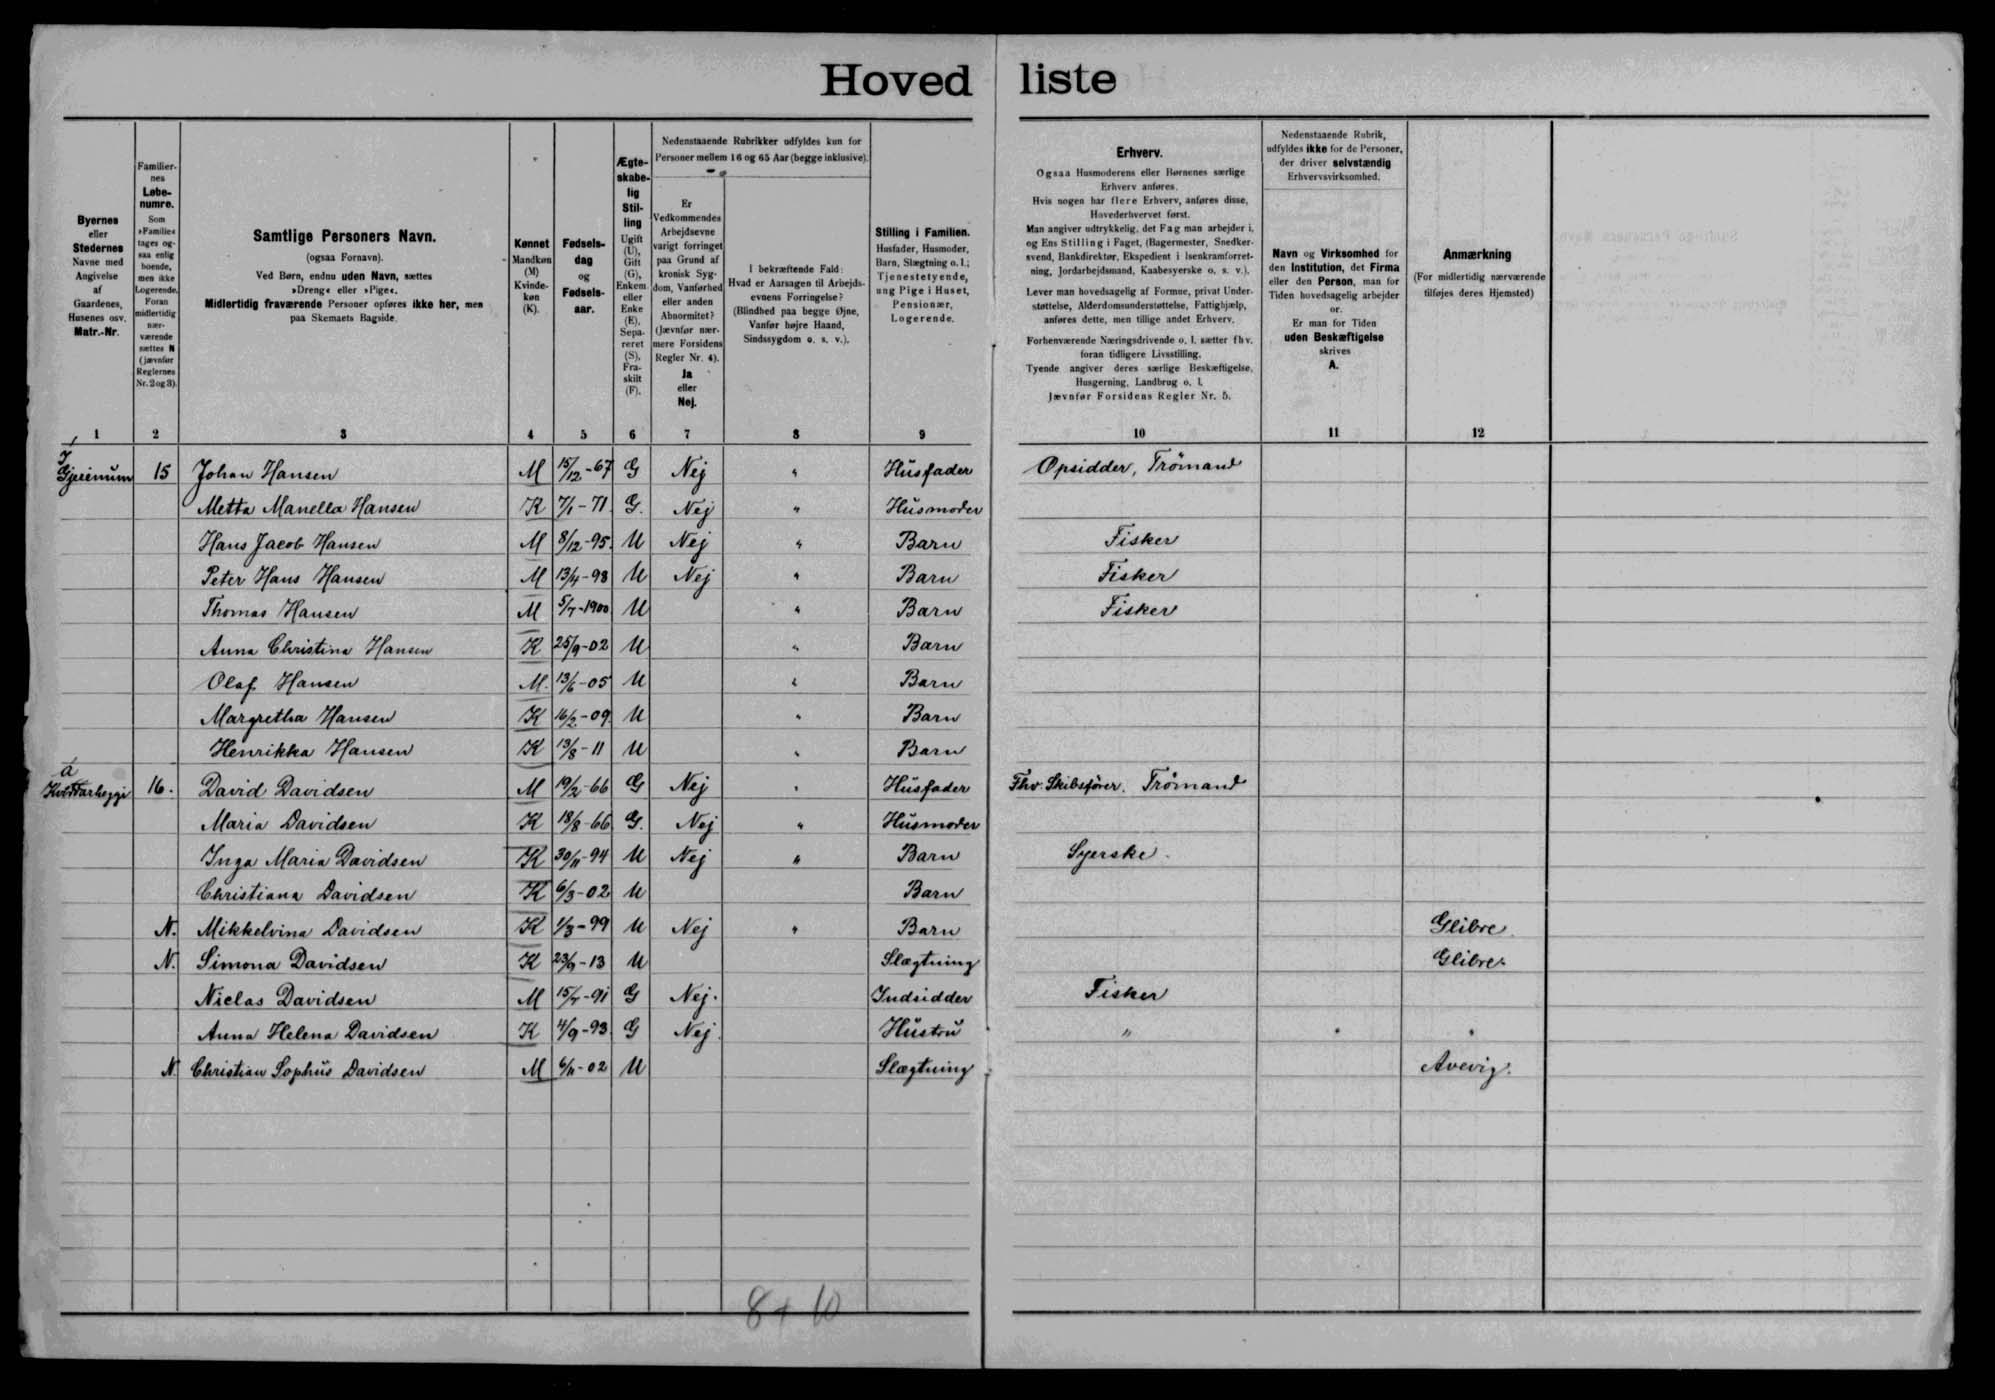 Hovedliste
Byernes eller Stedernes Navne med Angivelse af Gaardenes, Husenes osv. Matr.-Nr.
Familiernes Løbenumre. Som »Familie« tages ogsaa enlig boende, men ikke Logerende. Foran midlertidig nærværende sættes N (jævnfør Reglernes Nr. 2 og 3).
Samtlige Personers Navn.
(ogsaa Fornavn).
Ved Børn, endnu uden Navn, sættes
»Dreng« eller »Pige«.
Midlertidig fraværende Personer opføres ikke her, men
paa Skemaets Bagside.
Kønnet Mandkøn (M) Kvindekøn (K).
Fødselsdag og Fødselsaar.
Ægteskabelig Stilling Ugift (U), Gift (G), Enkem. eller Enke (E), Separeret (S), Fraskilt (F).
Nedenstaaende Rubrikker udfyldes kun for
Personer mellem 16 og 65 Aar (begge inklusive).
Er Vedkommendes Arbejdsevne varigt forringet paa Grund af kronisk Sygdom, Vanførhed eller anden Abnormitet? (Jævnfør nærmere Forsidens Regler Nr. 4). Ja eller Nej.
I bekræftende Fald: Hvad er Aarsagen til Arbejdsevnens Forringelse? (Blindhed paa begge Øjne, Vanfør højre Haand, Sindssygdom o. s. v.).
Stilling i Familien. Husfader, Husmoder, Barn, Slægtning o. l.; Tjenestetyende, ung Pige i Huset, Pensionær, Logerende.
Erhverv.
Ogsaa Husmoderens eller Børnenes særlige
Erhverv anføres.
Hvis nogen har flere Erhverv, anføres disse,
Hovederhvervet først.
Man angiver udtrykkelig, det Fag man arbejder i,
og Ens Stilling i Faget, (Bagermester, Snedker-
svend, Bankdirektør, Ekspedient i Isenkramforret-
ning, Jordarbejdsmand, Kaabesyerske o. s. v.).
Lever man hovedsagelig af Formue, privat Under-
støttelse, Alderdomsunderstøttelse, Fattighjælp,
anføres dette, men tillige andet Erhverv.
Forhenværende Næringsdrivende o. l. sætter fhv.
foran tidligere Livsstilling.
Tyende angiver deres særlige Beskæftigelse,
Husgerning, Landbrug o. l.
Jævnfør Forsidens Regler Nr. 5.
Nedenstaaende Rubrik,
udfyldes ikke for de Personer,
der driver selvstændig
Erhvervsvirksomhed.
Navn og Virksomhed for
den Institution, det Firma
eller den Person, man for
Tiden hovedsagelig arbejder
for.
Er man for Tiden
uden Beskæftigelse
skrives
A.
Anmærkning
(For midlertidig nærværende
tilføjes deres Hjemsted)
1 2 3 4 5 6 7 8 9 10 11 12
I
Gjeienum 15 Johan Hansen M 15/12-67 G Nej " Husfader Opsidder, Trömand
Metta Manella Hansen K 7/1-71 G. Nej " Husmoder
Hans Jacob Hansen M 8/12-95. U Nej " Barn Fisker
Peter Hans Hansen M 13/4-98 U Nej " Barn Fisker
Thomas Hansen M 5/7-1900 U " Barn Fisker
Anna Christina Hansen K 25/9-02 U " Barn
Olaf Hansen M. 13/6-05 U " Barn
Margretha Hansen K 16/2-09. U " Barn
Henrikka Hansen K 13/8-11 U " Barn
á
16. David Davidsen M 19/2-66 G Nej " Husfader Fhv. Skibsfører. Trömand
Maria Davidsen K 18/8-66 G. Nej " Husmoder
Inga Maria Davidsen K 30/11-94 U Nej " Barn Syerske.
Christiana Davidsen K 6/3-02 U Barn
N. Mikkelvina Davidsen K 1/3-99 U Nej " Barn Glibre.
N. Simona Davidsen K 23/9-13 U Slægtning Glibre.
Niclas Davidsen M 15/7-91 G Nej. Indsidder Fisker
Anna Helena Davidsen K 4/9-93. G Nej. Hustru " " "
N. Christian Sophus Davidsen M 6/11-02 U Slægtning Avevig.
8 + 10